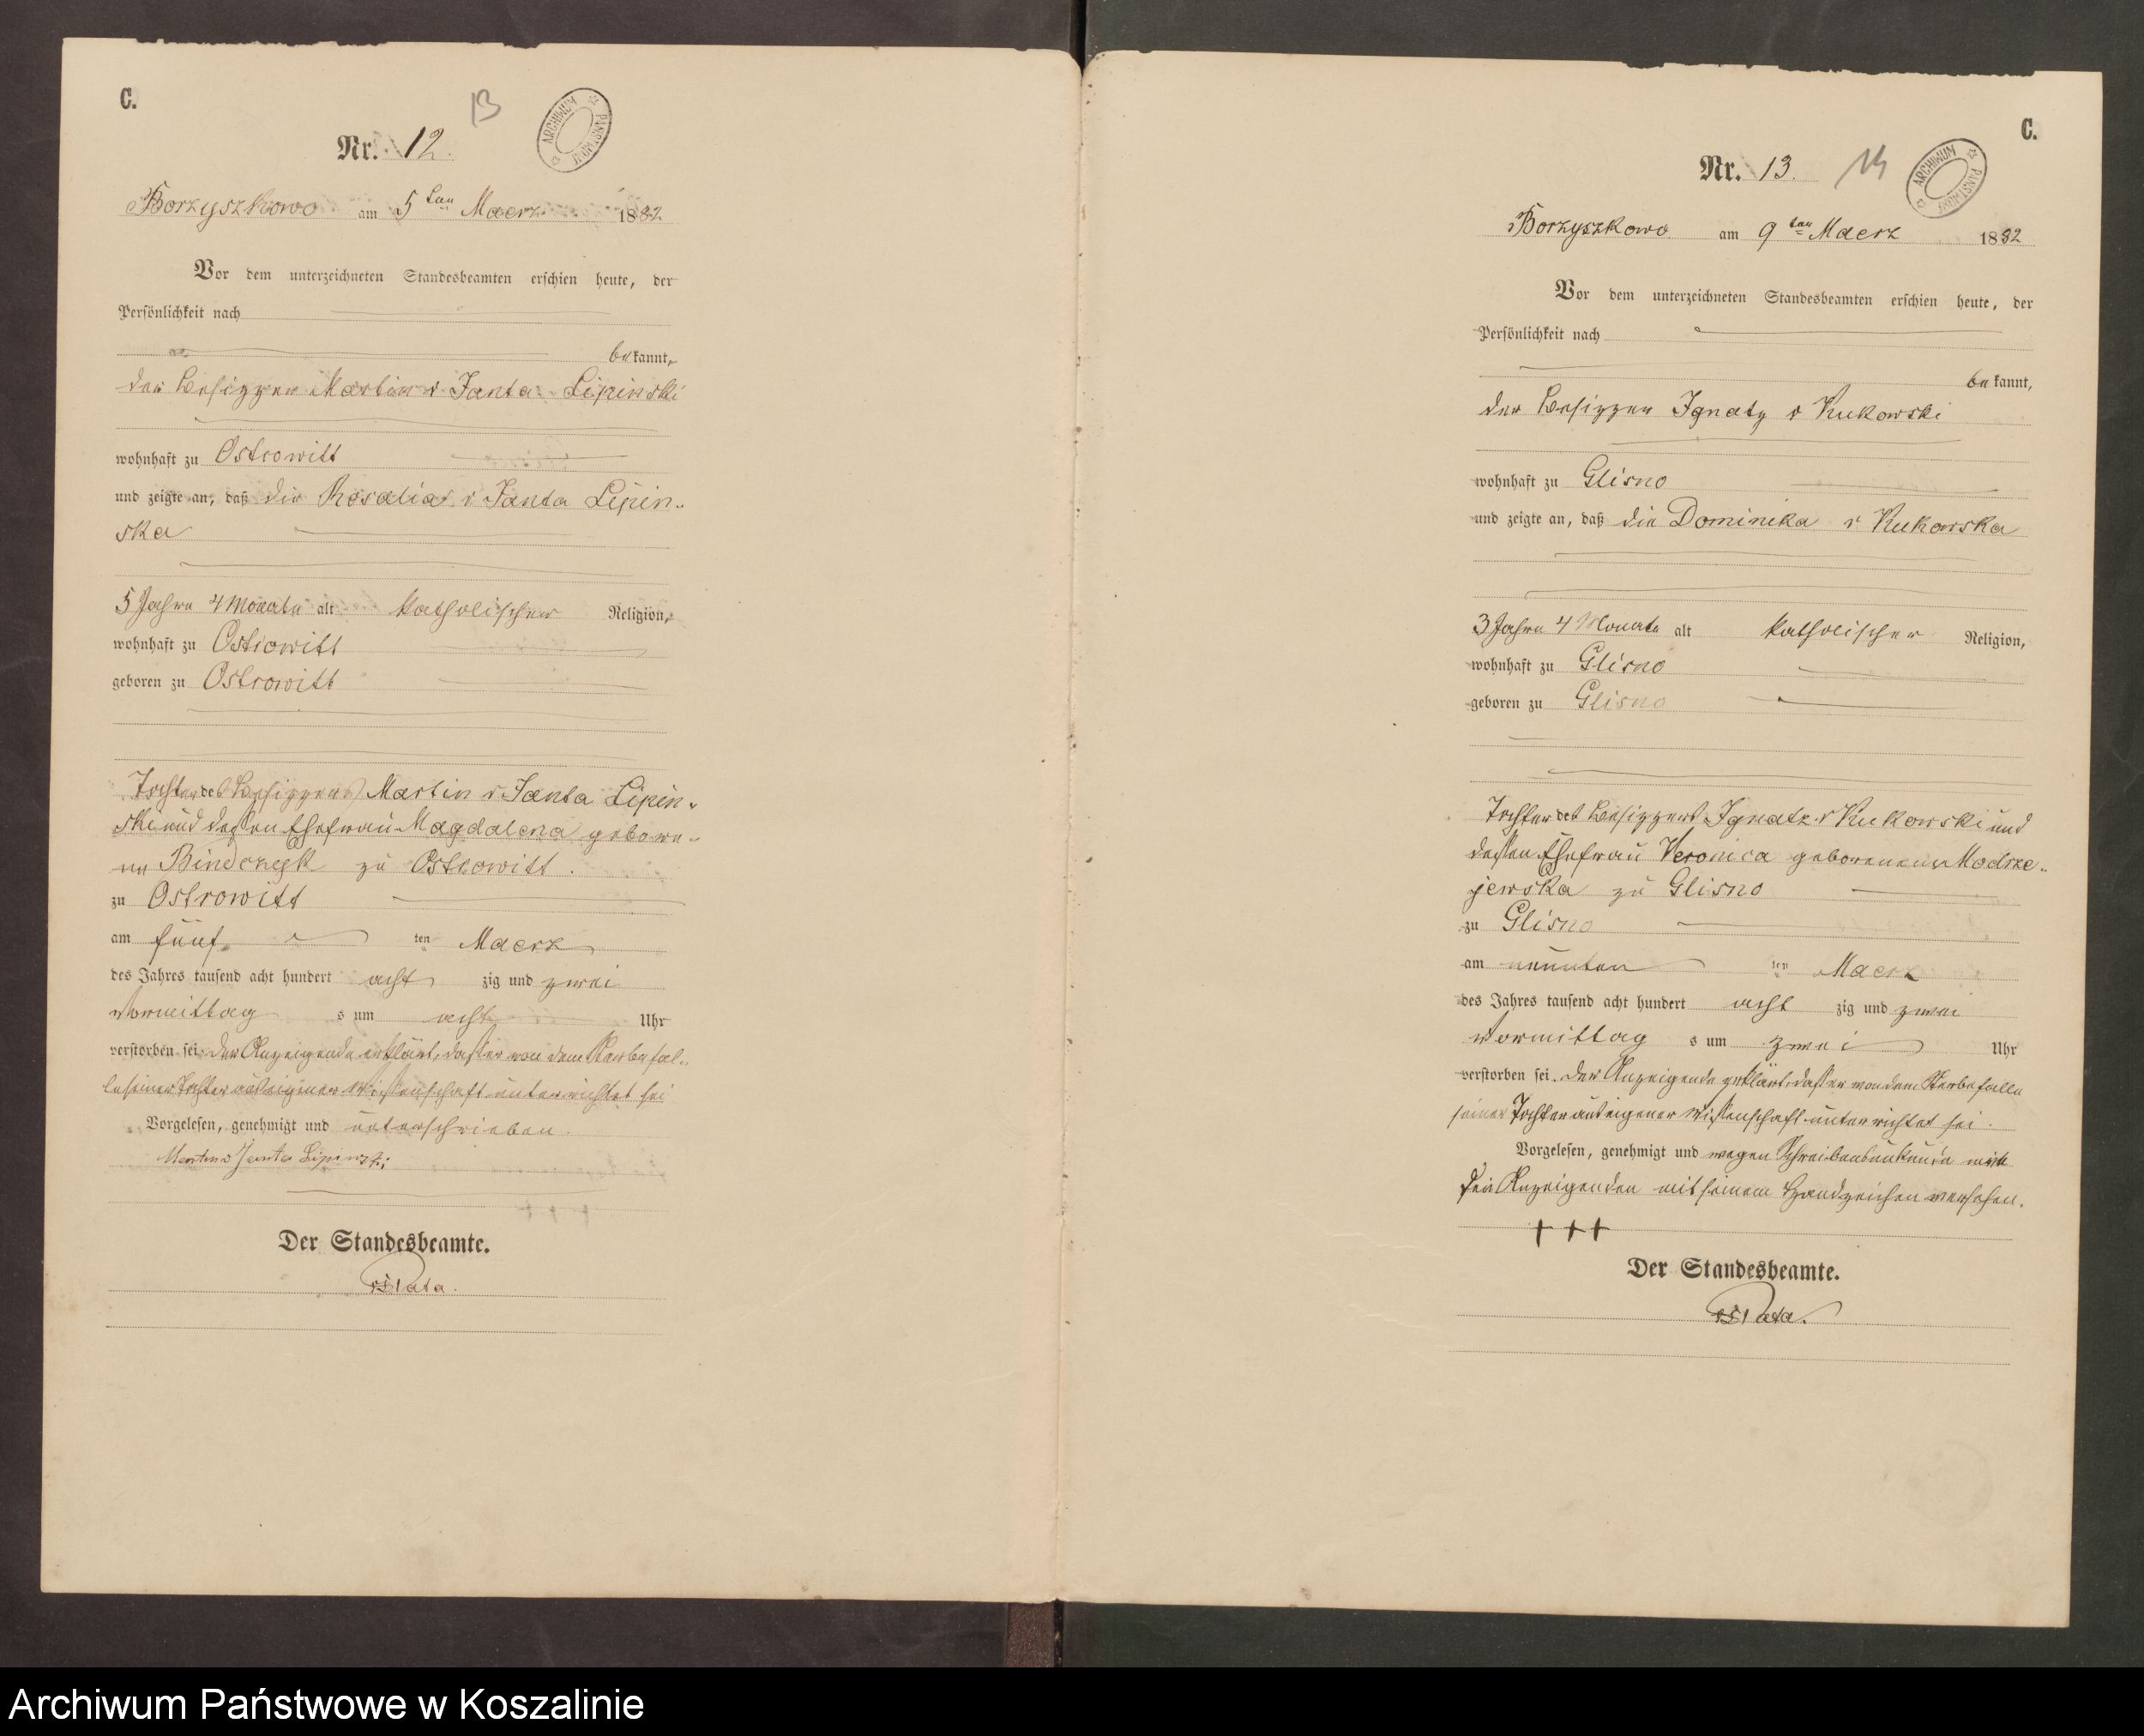 C.
13
Nr. 12.
ARCHIWUM PAŃSTWOWE
Borzyszkowo am 5ten Maerz 1882
Vor dem unterzeichneten Standesbeamten erschien heute, der
Persönlichkeit nach
bekannt,
der Besitzer Martin v Janta-Lipinski
wohnhaft zu Ostrowitt
und zeigte an, daß die Rosalia v Janta Lipin-
ska
5 Jahre 4 Monate alt katholischer Religion,
wohnhaft zu Ostrowitt
geboren zu Ostrowitt
Tochter des Besitzers Martin v Janta Lipin-
ski und dessen Ehefrau Magdalena gebore-
ne zu Ostrowitt.
zu Ostrowitt
am fünf ten Maerz
des Jahres tausend acht hundert acht zig und zwei
Vormittag s um acht Uhr
verstorben sei. Der Anzeigende erklärt, daß er von dem Sterbefal-
le seiner Tochter aus eigener Wissenschaft unterrichtet sei
Vorgelesen, genehmigt und unterschrieben.
Martin v Janta Lipinski
Der Standesbeamte.
C.
Nr. 13.
14
ARCHIWUM PAŃSTWOWE
Borzyszkowo am 9ten Maerz 1882
Vor dem unterzeichneten Standesbeamten erschien heute, der
Persönlichkeit nach
bekannt,
der Besitzer Ignatz v Kukowski
wohnhaft zu Glisno
und zeigte an, daß die Dominika v Kukowska
3 Jahre 4 Monate alt katholischer Religion,
wohnhaft zu Glisno
geboren zu Glisno
Tochter des Besitzers Ignatz v Kukowski und
dessen Ehefrau Veronica geborenen Modrze-
jewska zu Glisno
zu Glisno
am neunten ten Maerz
des Jahres tausend acht hundert acht zig und zwei
Vormittag s um zwei Uhr
verstorben sei. Der Anzeigende erklärt, daß er von dem Sterbefalle
seiner Tochter aus eigener Wissenschaft unterrichtet sei.
Vorgelesen, genehmigt und wegen Schreibensunkunde
Anzeigenden mit seinem Handzeichen versehen.
+++
Der Standesbeamte.
Archiwum Państwowe w Koszalinie